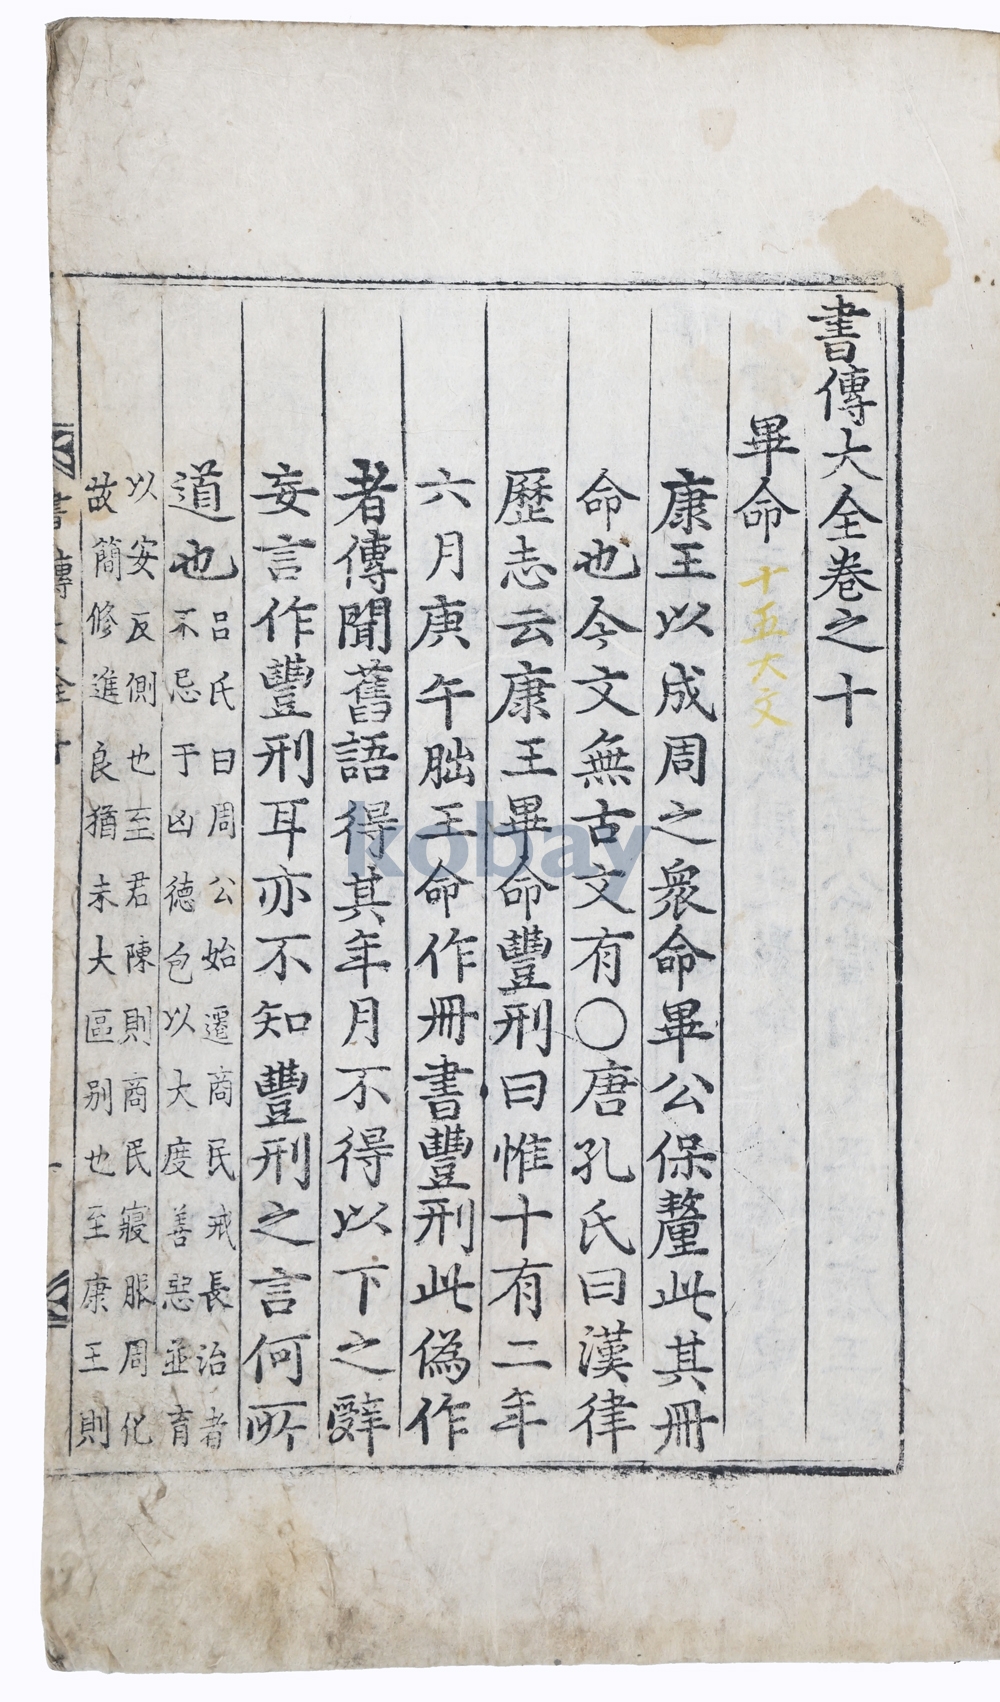 書傳大全卷之十
畢命
十五大文
康王以成周之衆命畢公保釐此其冊
命也今文無古文有○唐孔氏曰漢律
歷志云康王畢命豐刑曰惟十有二年
六月庚午朏王命作冊書豐刑此偽作
者傳聞舊語得其年月不得以下之辭
妄言作豐刑耳亦不知豐刑之言何所
道也
呂氏曰周公始遷商民戒長治者
不忌于凶德包以大度善惡並育
以安反側也至君陳則商民寢服周化
故簡修進良猶未大區別也至康王則
書傳大全 十
kobay